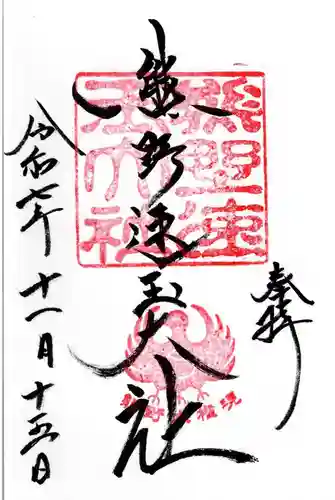 奉拝
熊野速玉大社
熊野速玉大社
令和七年十一月十五日